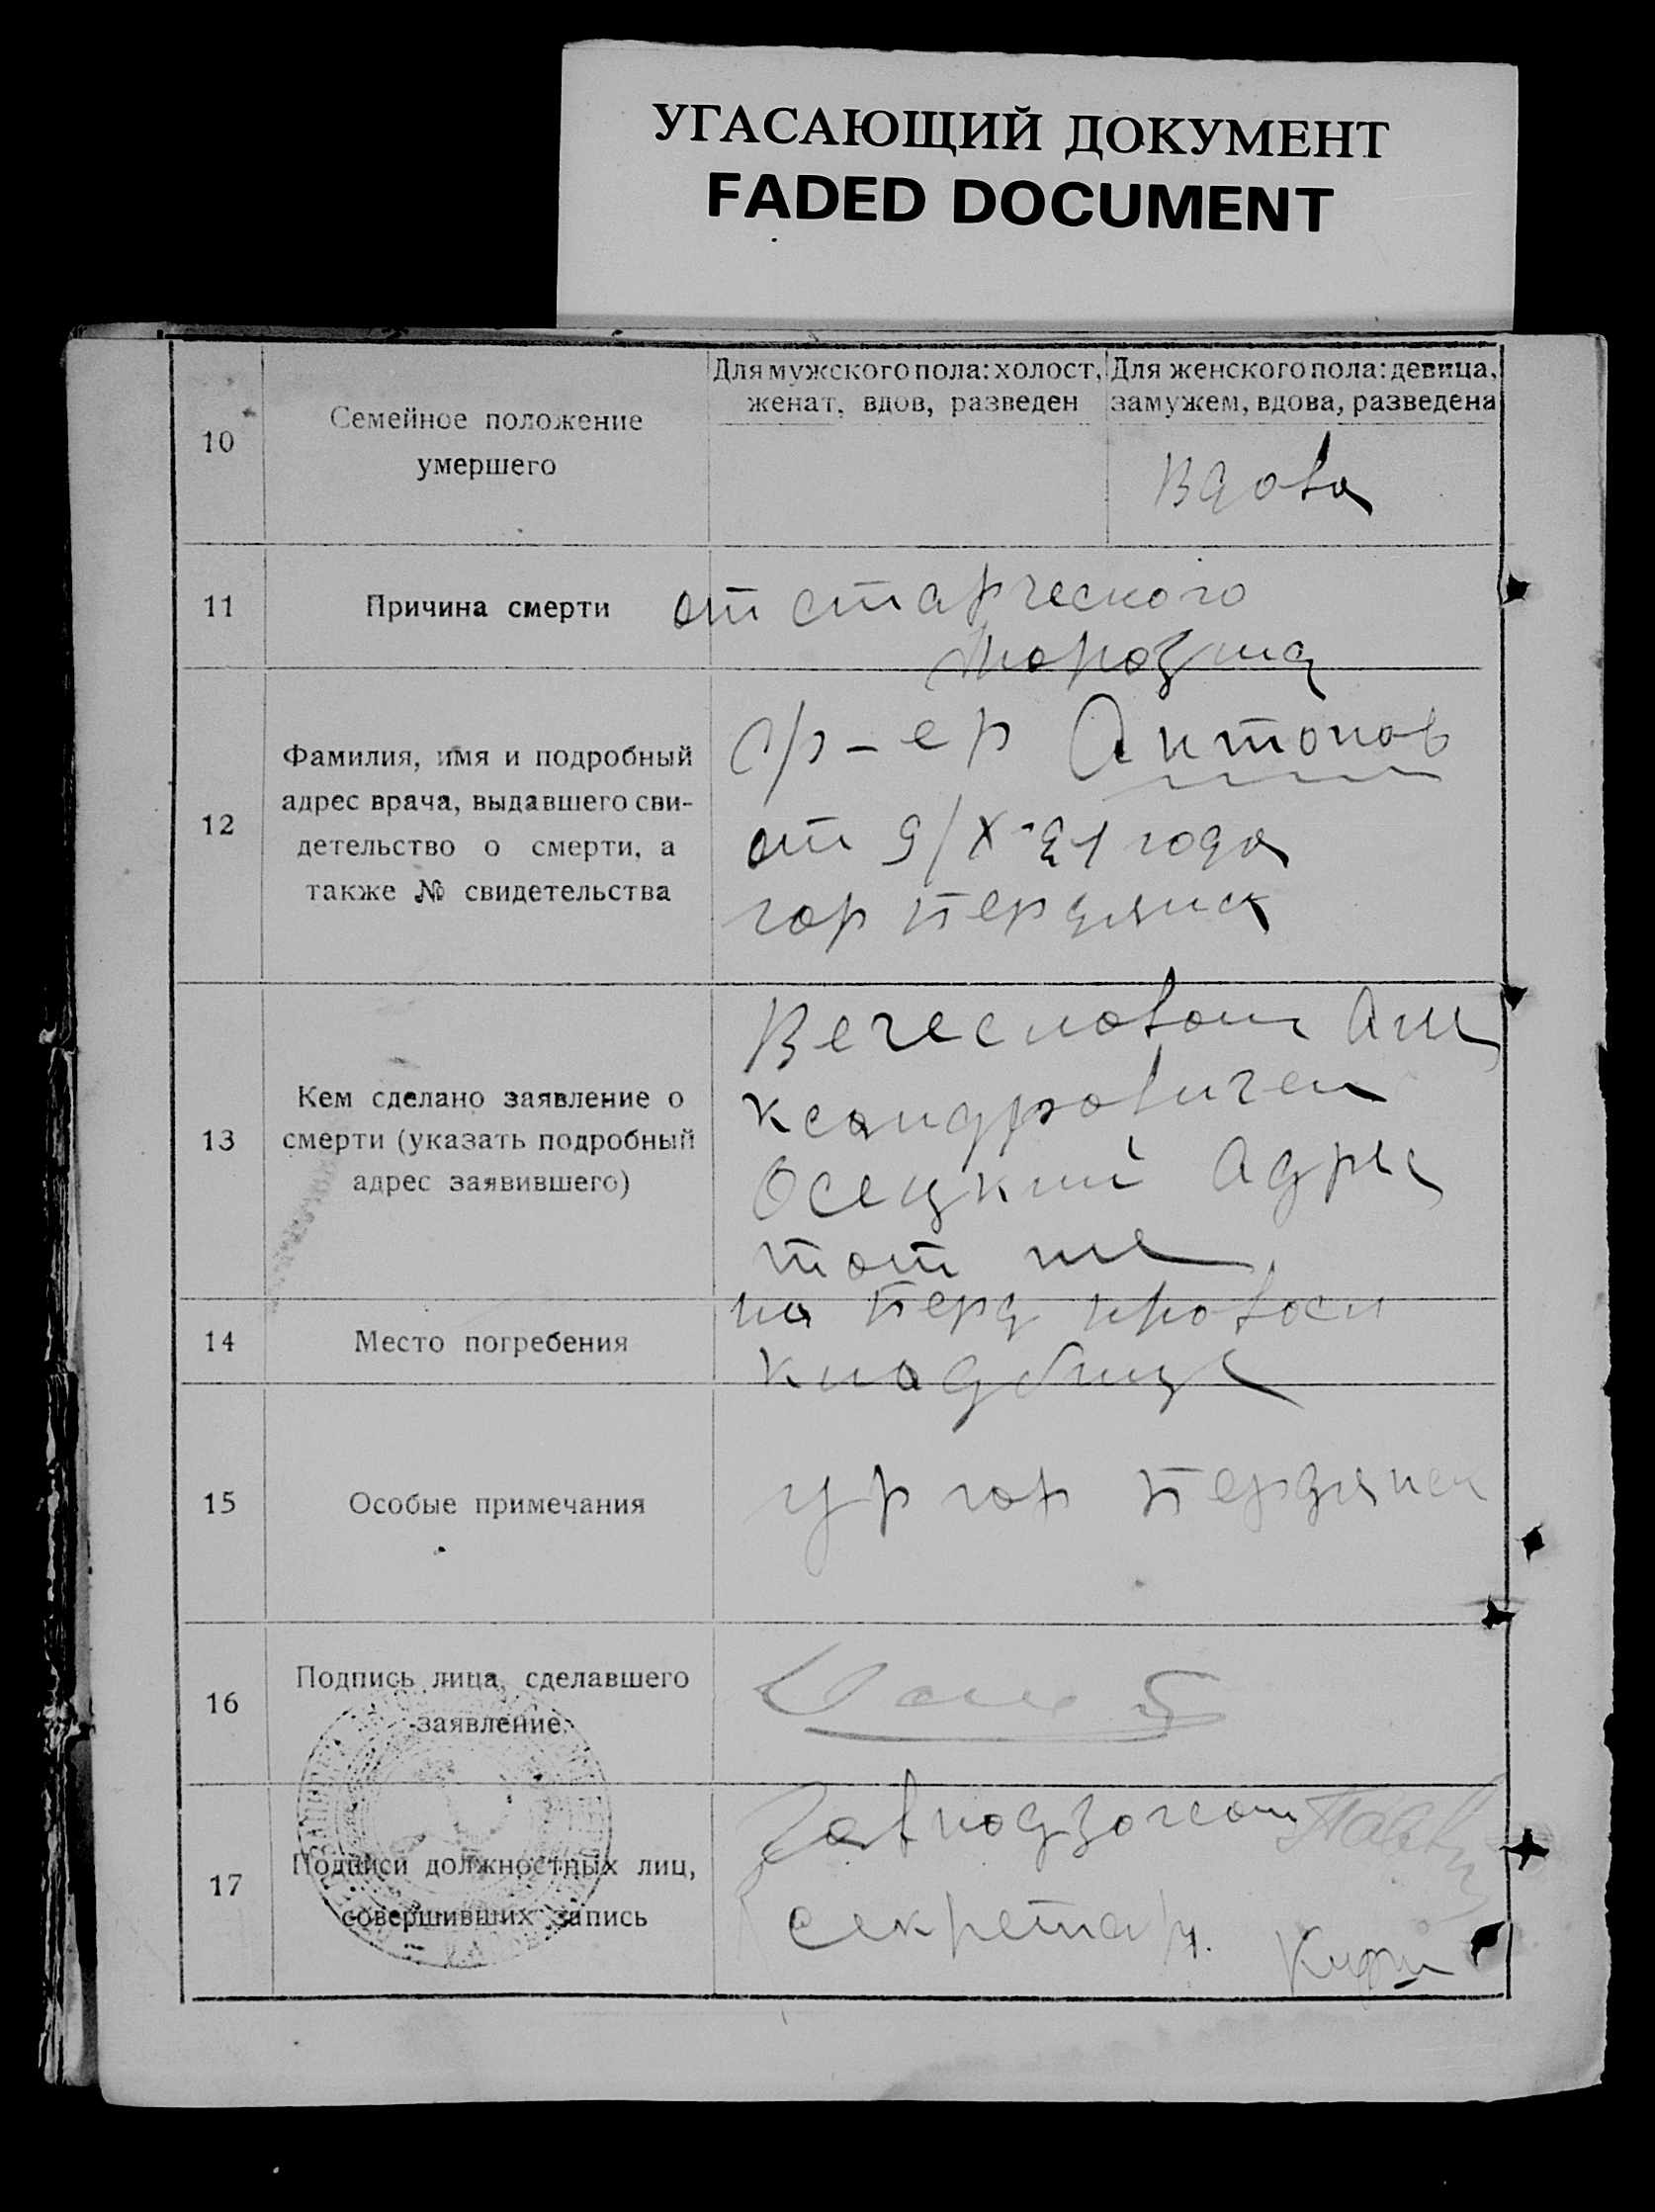 УГАСАЮЩИЙ ДОКУМЕНТ
FADED DOCUMENT
10
Семейное положение
умершего
Для мужского пола: холост,
женат, вдов, разведен
Для женского пола: девица,
замужем, вдова, разведена
Вдова
11
Причина смерти
от старческого
12
Фамилия, имя и подробный
адрес врача, выдавшего сви-
детельство о смерти, а
также № свидетельства
Антонов
от 9/X-21 года
гор Бердянск
13
Кем сделано заявление о
смерти (указать подробный
адрес заявившего)
Вечесловом Але
ксандровичем
Осецкий Адрес
тот же
14
Место погребения
на Берд правосл
кладбище
15
Особые примечания
гор Бердянск
16
Подпись лица, сделавшего
заявление.
17
Подписи должностных лиц,
совершивших запись
Завподзагсом
секретарь